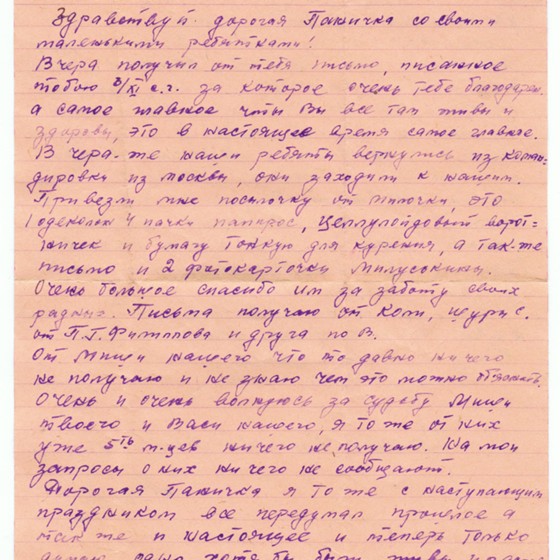 Здравствуй дорогая Паничка со своими
маленькими ребятками!
Вчера получил от тебя письмо, писанное
тобою 8/XI с.г. за которое очень тебе благодарен
а самое главное что Вы все там живы и
здоровы, это в настоящее время самое главное.
Вчера-же наши ребята вернулись из коман-
дировки из Москвы, они заходили к нашим.
Привезли мне посылочку от Милочки, это
1 одеколон 4 пачки папирос, целлулойдовый ворот=
ничек и бумагу тонкую для курения, а так-же
письмо и 2 фотокарточки Милуськины.
Очень большое спасибо им за заботу своих
родных. Письма получаю от Коли, Шуры С.
от П.Г. Филиппова и друга по В.
От Миши нашего что то давно ничего
не получаю и не знаю чем это можно объяснить.
Очень и очень волнуюсь за судьбу Миши
твоего и Васи нашего, я то же от них
уже 5ть м-цев ничего не получаю. На мои
запросы о них ни чего не сообщают.
Дорогая Паничка я то же с наступающим
праздником все передумал прошлое а
так же и настоящее и теперь только
хотя бы были живы